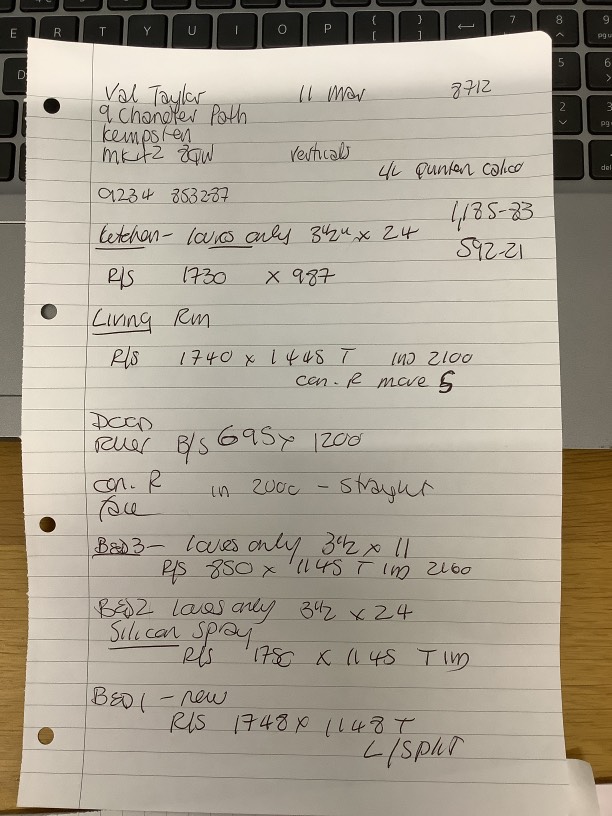 Val Taylor 11 Mar 8712
9 Chandler Path
Kempston
MK42 8QW Verticals
L/L Quinten Calico
01234 853287
1,185-83
Kitchen - louvres only 3½" x 24
592-21
R/S 1730 x 987
Living Rm
R/S 1740 x 1445 T IND 2100
con. R move 5
Door
Roller B/S 695 x 1200
con. R in 2000 - straight
face
BED 3 - louvres only 3½ x 11
R/S 850 x 1145 T IND 2100
BED 2 louvres only 3½ x 24
Silicon Spray
R/S 1750 x 1145 T IND
BED 1 - new
R/S 1748 x 1148 T
L/Split